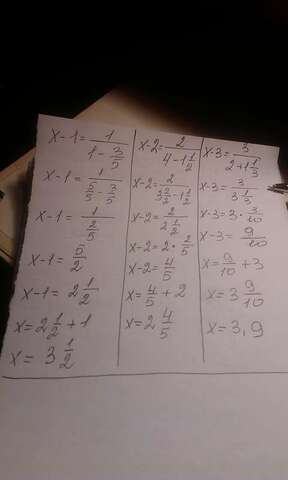 x-1 = 1/(1 - 3/5)
x-1 = 1/(5/5 - 3/5)
x-1 = 1/(2/5)
x-1 = 5/2
x-1 = 2 1/2
x = 2 1/2 + 1
x = 3 1/2
x-2 = 2/(4 - 1 1/2)
x-2 = 2/(3 2/2 - 1 1/2)
x-2 = 2/(2 1/2)
x-2 = 2 · 2/5
x-2 = 4/5
x = 4/5 + 2
x = 2 4/5
x-3 = 3/(2 + 1 1/3)
x-3 = 3/(3 1/3)
x-3 = 3 · 3/10
x-3 = 9/10
x = 9/10 + 3
x = 3 9/10
x = 3,9